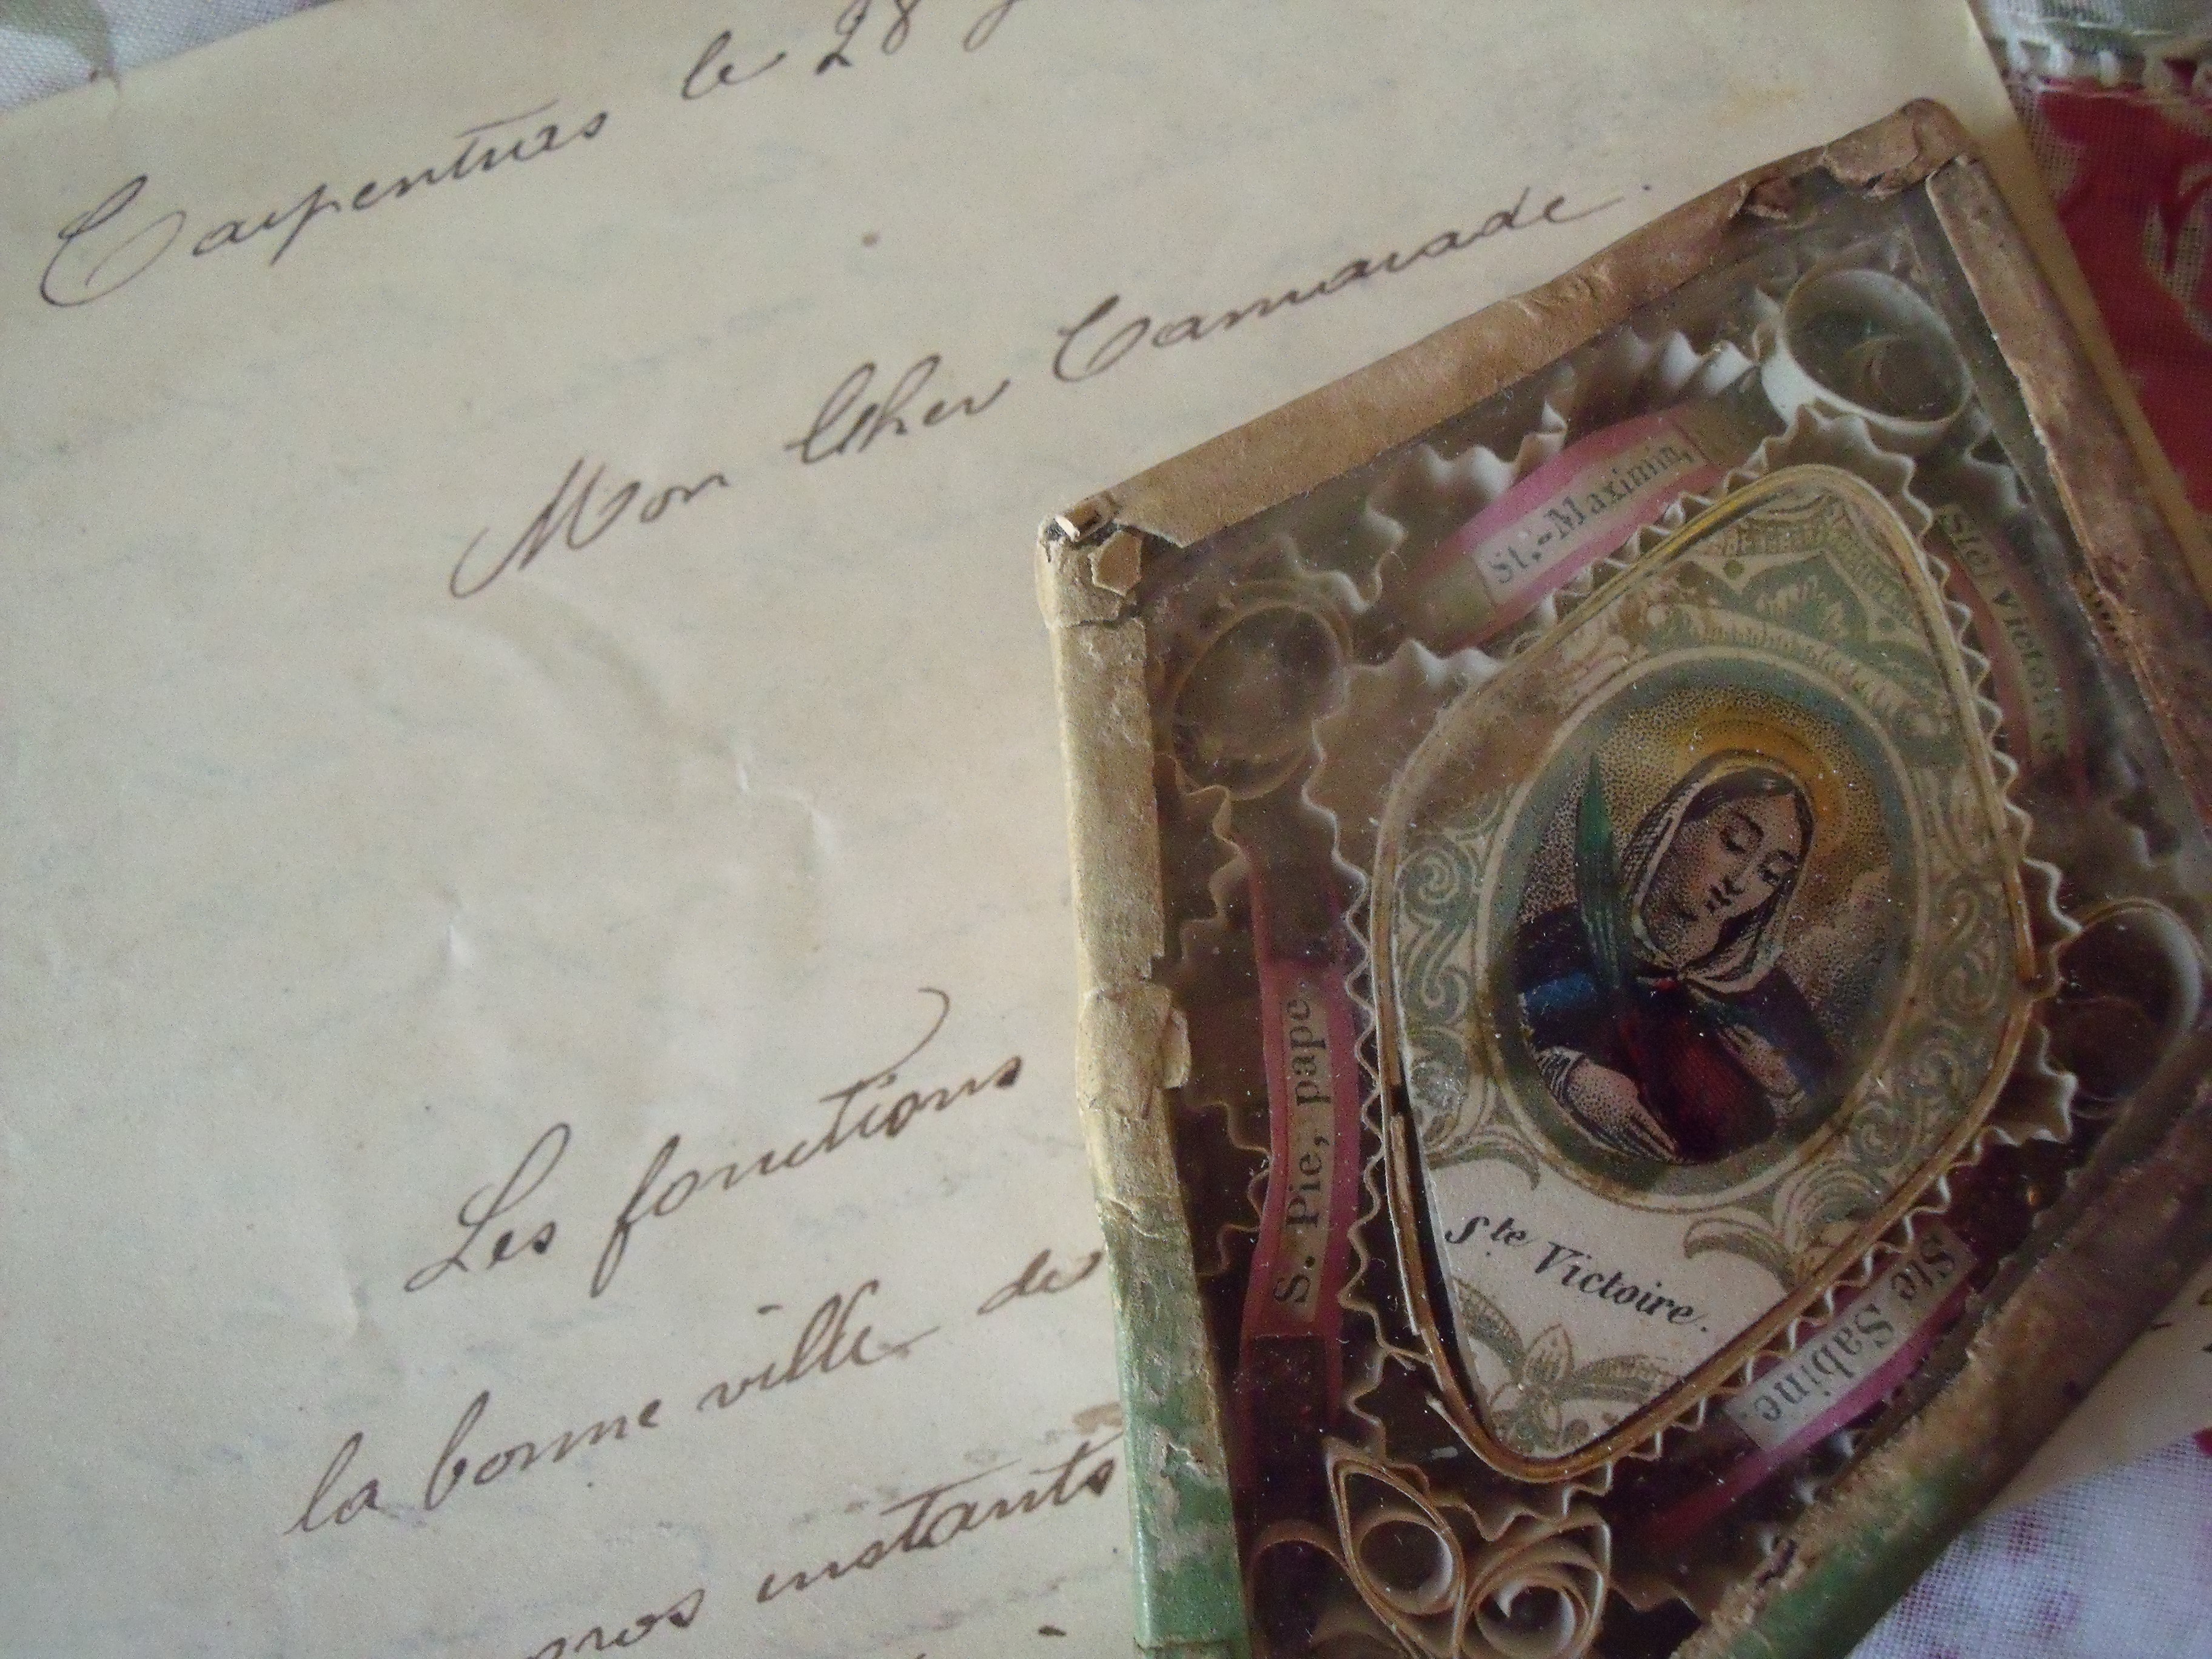 Carpentras le 28
Mon Cher Camarade.
Les fonctions
la bonne ville de
gros instants
St.-Maximin,
Ste Victoire
S. Pie, pape
Ste Victoire.
Ste Sabine.